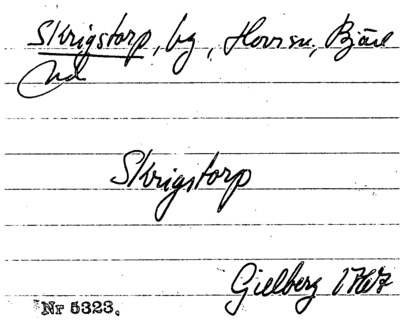 Skrigstorp, by, Hovs sn, Bjäre
hd
Skrigstorp
Gillberg 1767
Nr 5323.